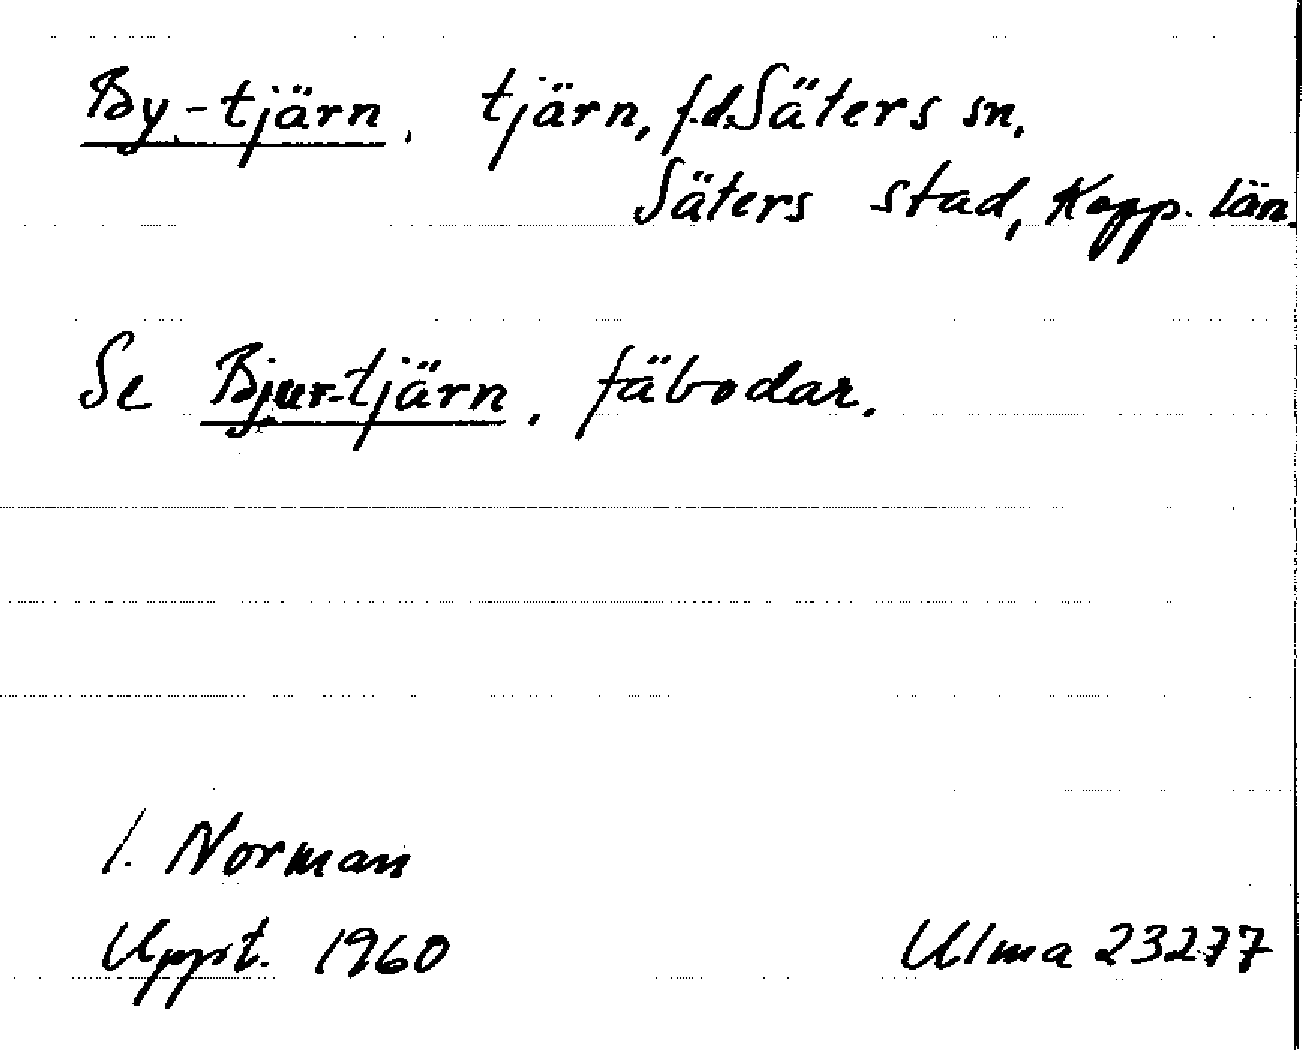 By-tjärn, tjärn, f.d. Säters sn,
Säters stad, Kopp. län.
Se Bjur-tjärn, fäbodar.
I. Norman
Uppt. 1960 Ulma 23277